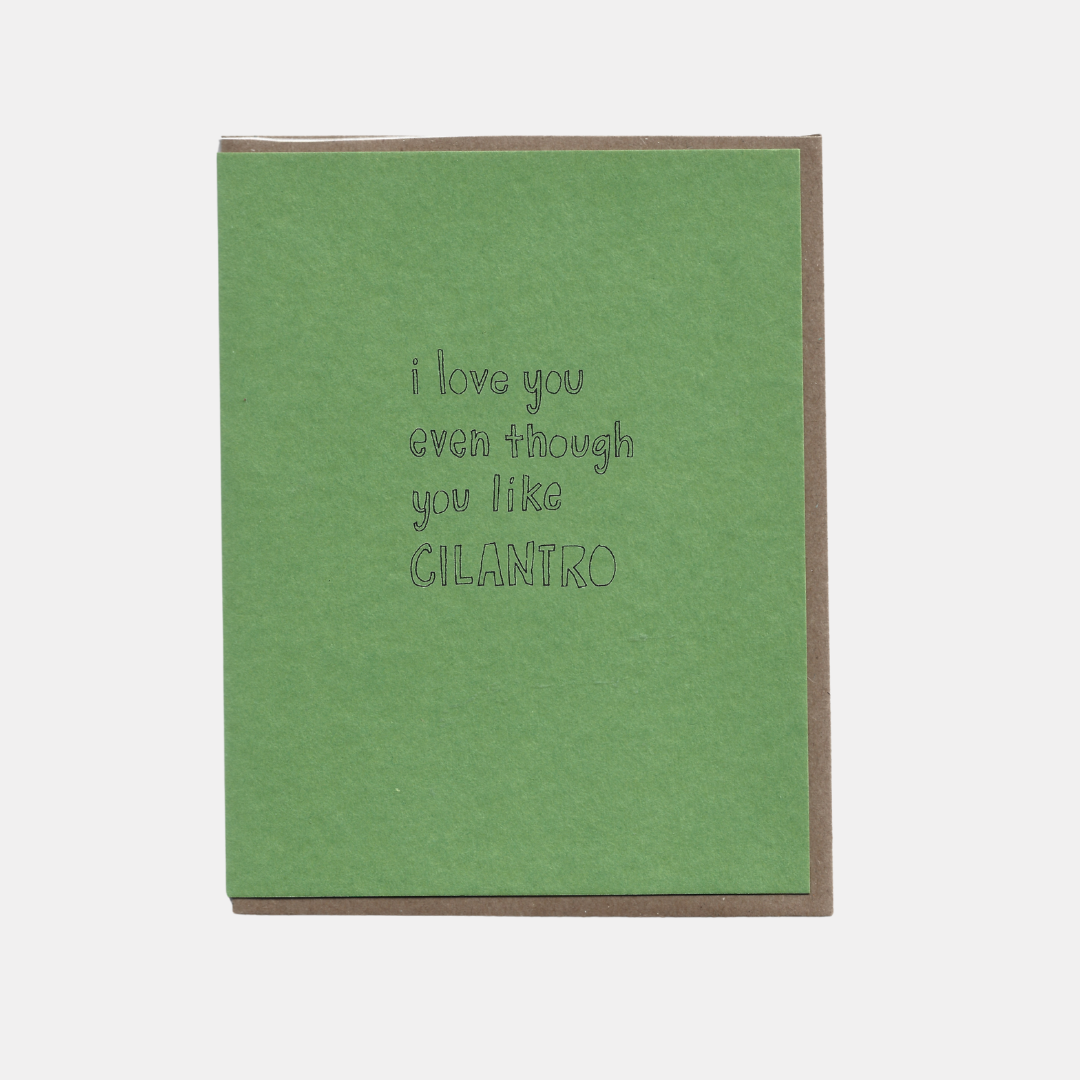 i love you
even though
you like
CILANTRO